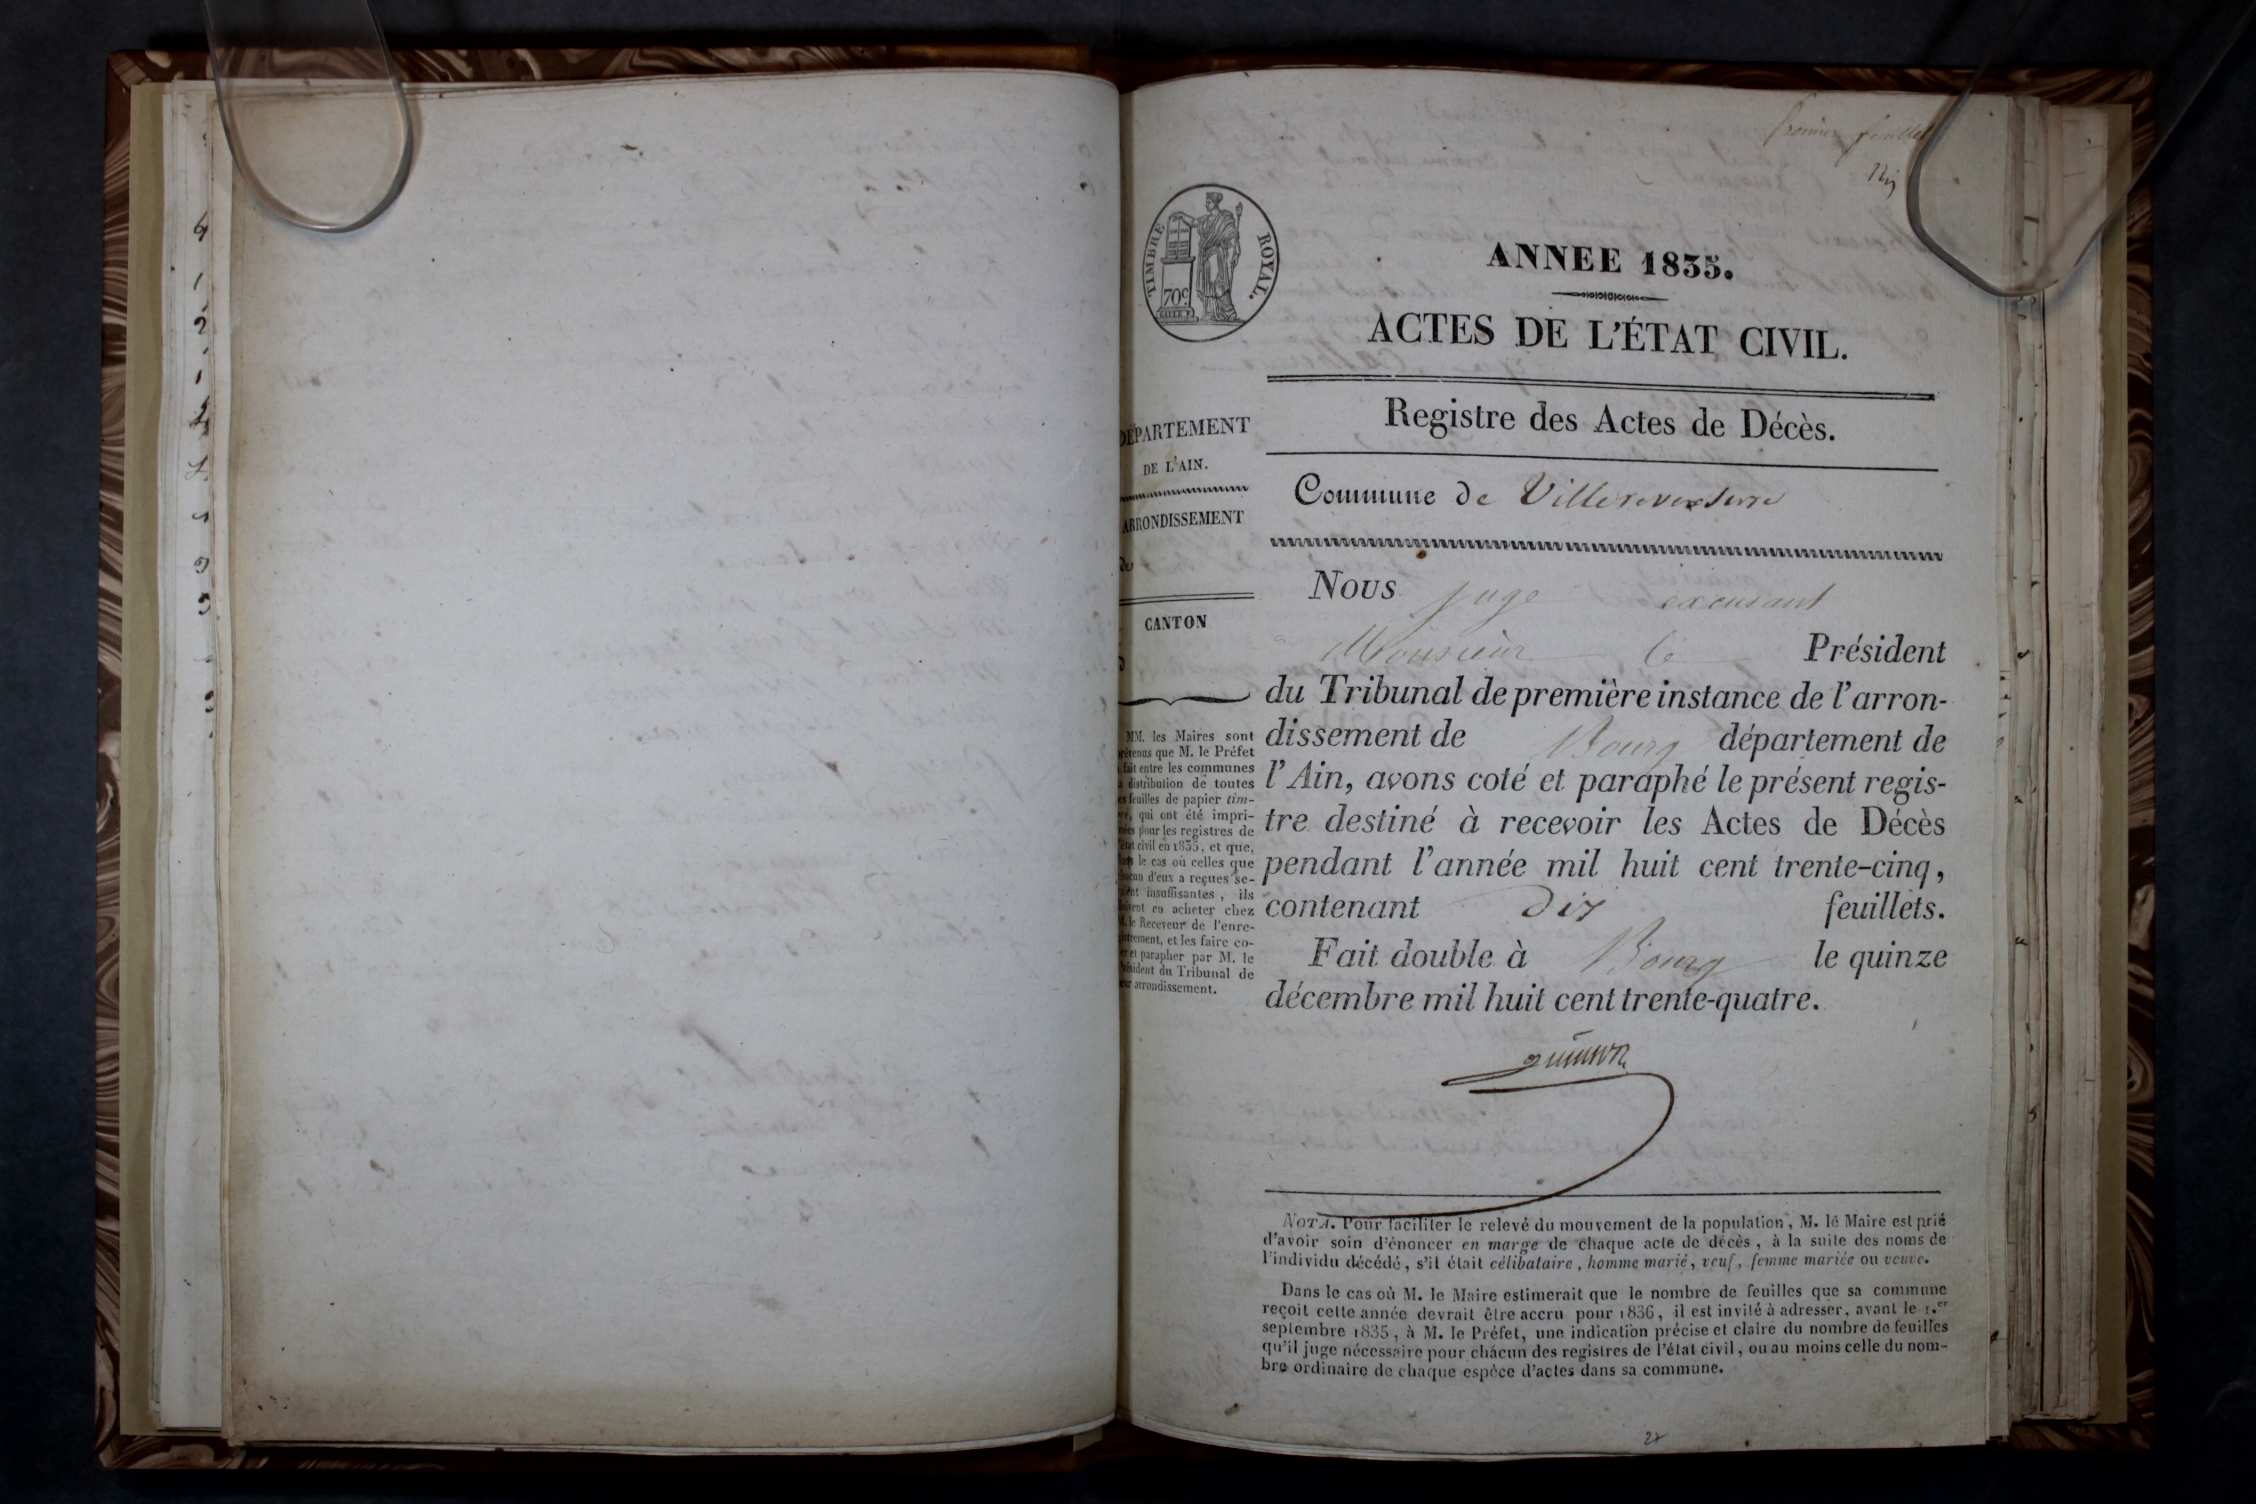 premier feuillet
TIMBRE ROYAL.
70c
ANNEE 1835.
ACTES DE L'ÉTAT CIVIL.
Registre des Actes de Décès.
Commune de Villereversure
DÉPARTEMENT
DE L'AIN.
ARRONDISSEMENT
de
CANTON
MM. les Maires sont
prévenus que M. le Préfet
fait entre les communes
distribution de toutes
feuilles de papier tim-
bré, qui ont été impri-
mées pour les registres de
l'état civil en 1835, et que,
dans le cas où celles que
chacun d'eux a reçues se-
raient insuffisantes, ils
doivent en acheter chez
M. le Receveur de l'enre-
gistrement, et les faire co-
ter et parapher par M. le
Président du Tribunal de
leur arrondissement.
Nous juge excusant
Monsieur le Président
du Tribunal de première instance de l'arron-
dissement de Bourg département de
l'Ain, avons coté et paraphé le présent regis-
tre destiné à recevoir les Actes de Décès
pendant l'année mil huit cent trente-cinq,
contenant dix feuillets.
Fait double à Bourg le quinze
décembre mil huit cent trente-quatre.
NOTA. Pour faciliter le relevé du mouvement de la population, M. le Maire est prié
d'avoir soin d'énoncer en marge de chaque acte de décès, à la suite des noms de
l'individu décédé, s'il était célibataire, homme marié, veuf, femme mariée ou veuve.
Dans le cas où M. le Maire estimerait que le nombre de feuilles que sa commune
reçoit cette année devrait être accru pour 1836, il est invité à adresser, avant le 1.er
septembre 1835, à M. le Préfet, une indication précise et claire du nombre de feuilles
qu'il juge nécessaire pour chacun des registres de l'état civil, ou au moins celle du nom-
bre ordinaire de chaque espèce d'actes dans sa commune.